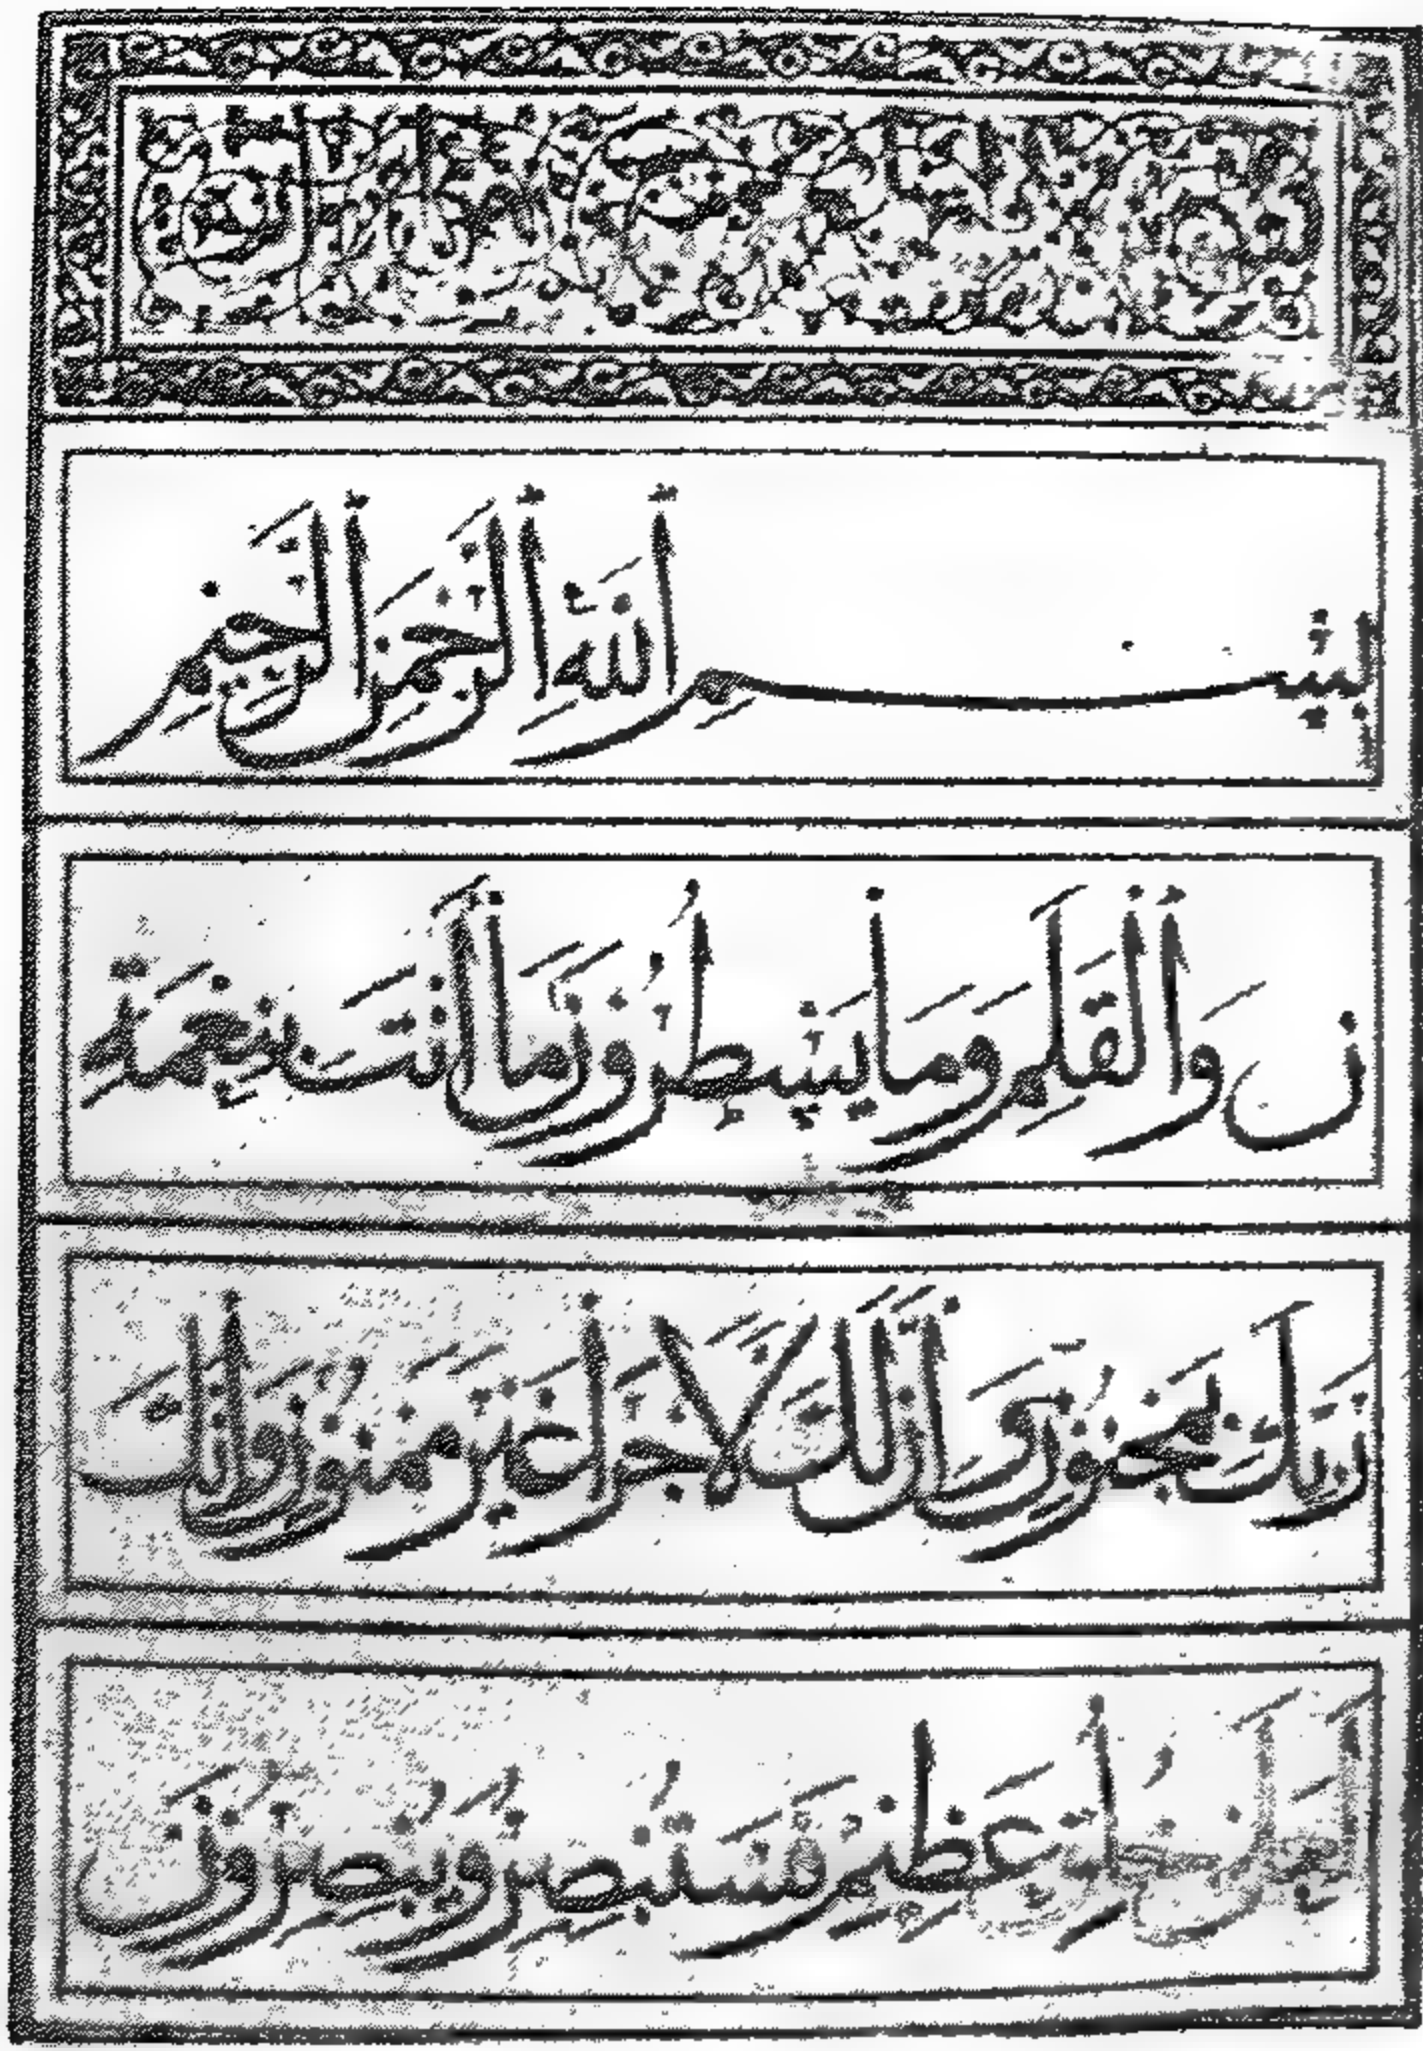 بِسْمِ اللَّهِ الرَّحْمَنِ الرَّحِيمِ
ن وَالْقَلَمِ وَمَا يَسْطُرُونَ مَا أَنْتَ بِنِعْمَةِ
رَبِّكَ بِمَجْنُونٍ وَإِنَّ لَكَ لَأَجْرًا غَيْرَ مَمْنُونٍ وَإِنَّكَ
لَعَلَى خُلُقٍ عَظِيمٍ فَسَتُبْصِرُ وَيُبْصِرُونَ